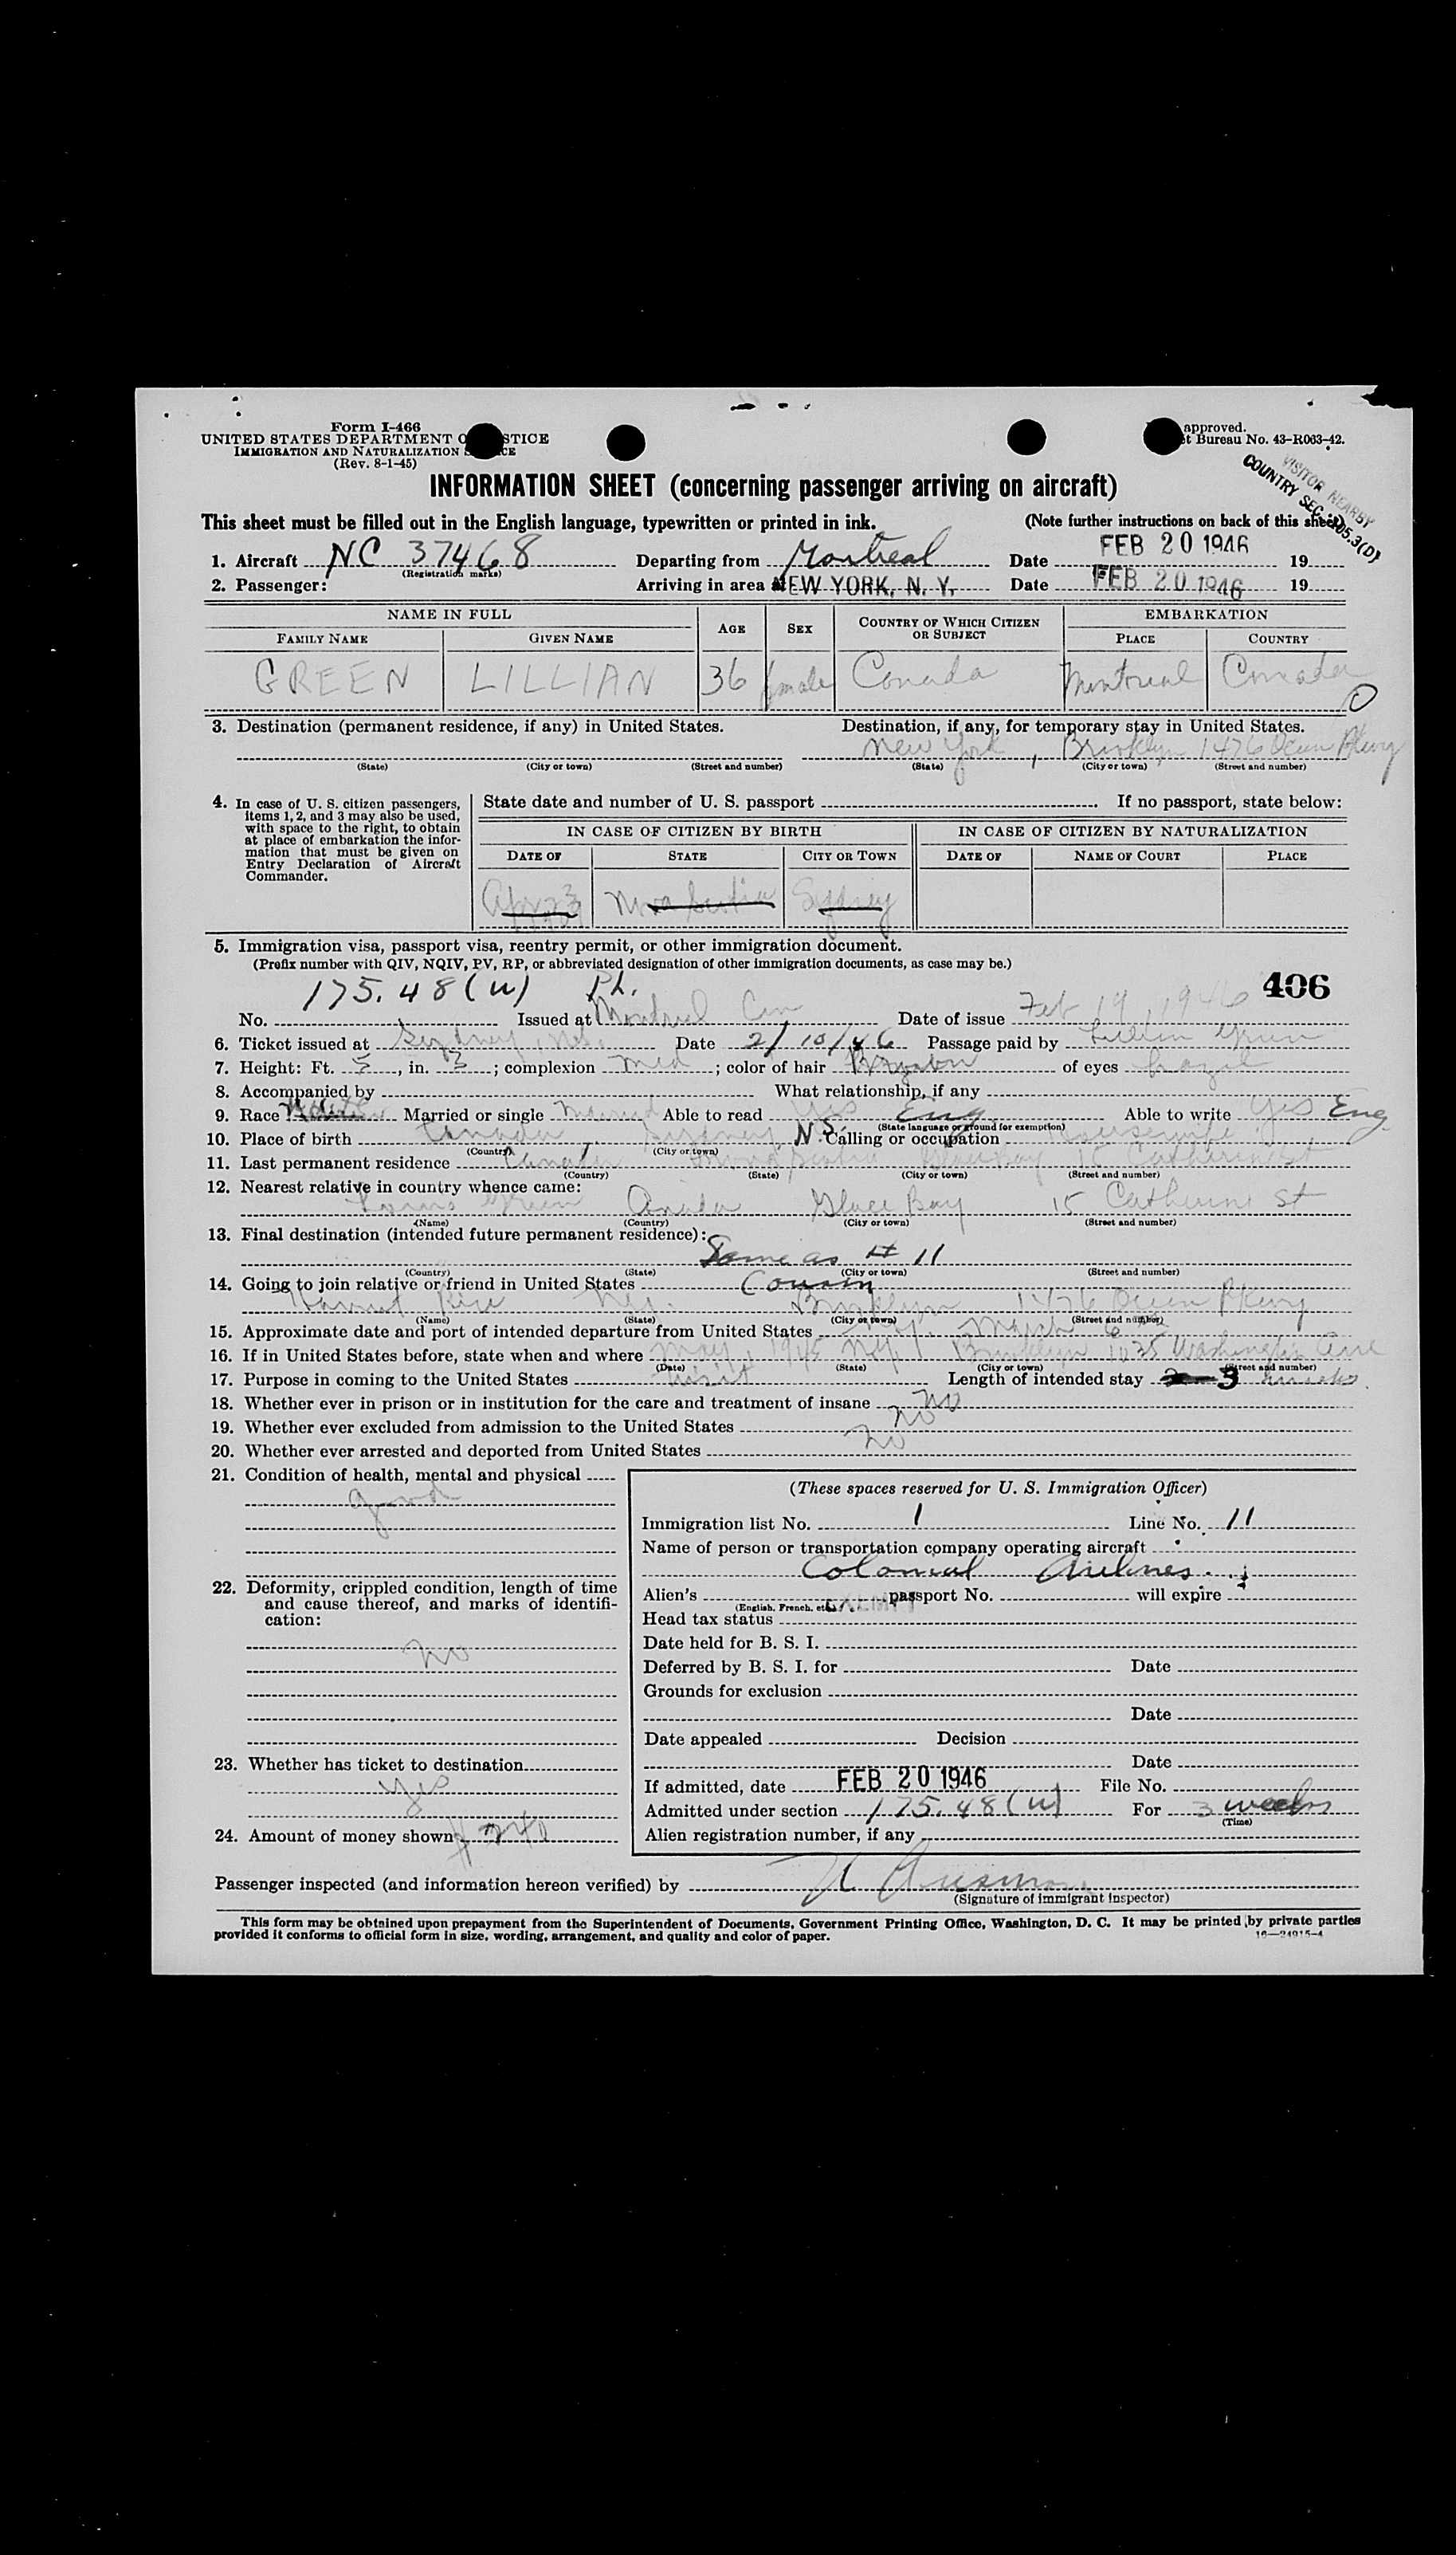 Form I-466
UNITED STATES DEPARTMENT O STICE
IMMIGRATION AND NATURALIZATION S CE
(Rev. 8-1-45)
approved.
t Bureau No. 43-R063-42.
VISITOR NEARBY
COUNTRY SEC. 105.3(D)
INFORMATION SHEET (concerning passenger arriving on aircraft)
This sheet must be filled out in the English language, typewritten or printed in ink. (Note further instructions on back of this sheet)
1. Aircraft NC 37468 Departing from Montreal Date FEB 20 1946 19
(Registration marks)
2. Passenger: Arriving in area NEW YORK, N. Y. Date FEB 20 1946 19
NAME IN FULL AGE SEX COUNTRY OF WHICH CITIZEN OR SUBJECT EMBARKATION
FAMILY NAME GIVEN NAME PLACE COUNTRY
GREEN LILLIAN 36 female Canada Montreal Canada
3. Destination (permanent residence, if any) in United States. Destination, if any, for temporary stay in United States.
New York, Brooklyn 1476 Ocean Pkwy
(State) (City or town) (Street and number) (State) (City or town) (Street and number)
4. In case of U. S. citizen passengers, items 1, 2, and 3 may also be used, with space to the right, to obtain at place of embarkation the information that must be given on Entry Declaration of Aircraft Commander.
State date and number of U. S. passport If no passport, state below:
IN CASE OF CITIZEN BY BIRTH IN CASE OF CITIZEN BY NATURALIZATION
DATE OF STATE CITY OR TOWN DATE OF NAME OF COURT PLACE
Apr 23 Nova Scotia Sydney
5. Immigration visa, passport visa, reentry permit, or other immigration document.
(Prefix number with QIV, NQIV, PV, RP, or abbreviated designation of other immigration documents, as case may be.)
406
No. 175.48(w) Issued at Montreal Can Date of issue Feb 19, 1946
6. Ticket issued at Sydney, N.S. Date 2/10/46 Passage paid by Lillian Green
7. Height: Ft. 5, in. 3; complexion Med; color of hair Brown of eyes hazel
8. Accompanied by What relationship, if any
9. Race Married or single Married Able to read Yes Eng Able to write Yes Eng
(State language or ground for exemption)
10. Place of birth Canada, Sydney, N.S. Calling or occupation Housewife
(Country) (City or town)
11. Last permanent residence Canada Nova Scotia Glace Bay 15 Catherine St
(Country) (State) (City or town) (Street and number)
12. Nearest relative in country whence came:
Green Canada Glace Bay 15 Catherine St
(Name) (Country) (City or town) (Street and number)
13. Final destination (intended future permanent residence):
Same as # 11
(Country) (State) (City or town) (Street and number)
14. Going to join relative or friend in United States Cousin
N.Y. Brooklyn 1476 Ocean Pkwy
(Name) (State) (City or town) (Street and number)
15. Approximate date and port of intended departure from United States N.Y. March 6
16. If in United States before, state when and where May, 1945 N.Y. Brooklyn 1035 Washington Ave
(Date) (State) (City or town) (Street and number)
17. Purpose in coming to the United States visit Length of intended stay 3 weeks
18. Whether ever in prison or in institution for the care and treatment of insane No
19. Whether ever excluded from admission to the United States No
20. Whether ever arrested and deported from United States No
21. Condition of health, mental and physical
good
22. Deformity, crippled condition, length of time and cause thereof, and marks of identification:
No
23. Whether has ticket to destination
Yes
24. Amount of money shown
(These spaces reserved for U. S. Immigration Officer)
Immigration list No. 1 Line No. 11
Name of person or transportation company operating aircraft
Colonial Airlines
Alien's passport No. will expire
(English, French, etc.)
Head tax status
Date held for B. S. I.
Deferred by B. S. I. for Date
Grounds for exclusion
Date
Date appealed Decision
Date
If admitted, date FEB 20 1946 File No.
Admitted under section 175.48(w) For 3 weeks
(Time)
Alien registration number, if any
Passenger inspected (and information hereon verified) by
(Signature of immigrant inspector)
This form may be obtained upon prepayment from the Superintendent of Documents, Government Printing Office, Washington, D. C. It may be printed by private parties
provided it conforms to official form in size, wording, arrangement, and quality and color of paper. 16—24915-4